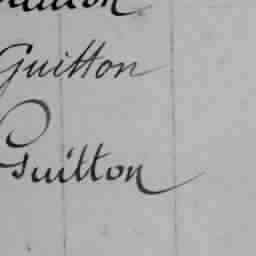 Guitton
Guitton